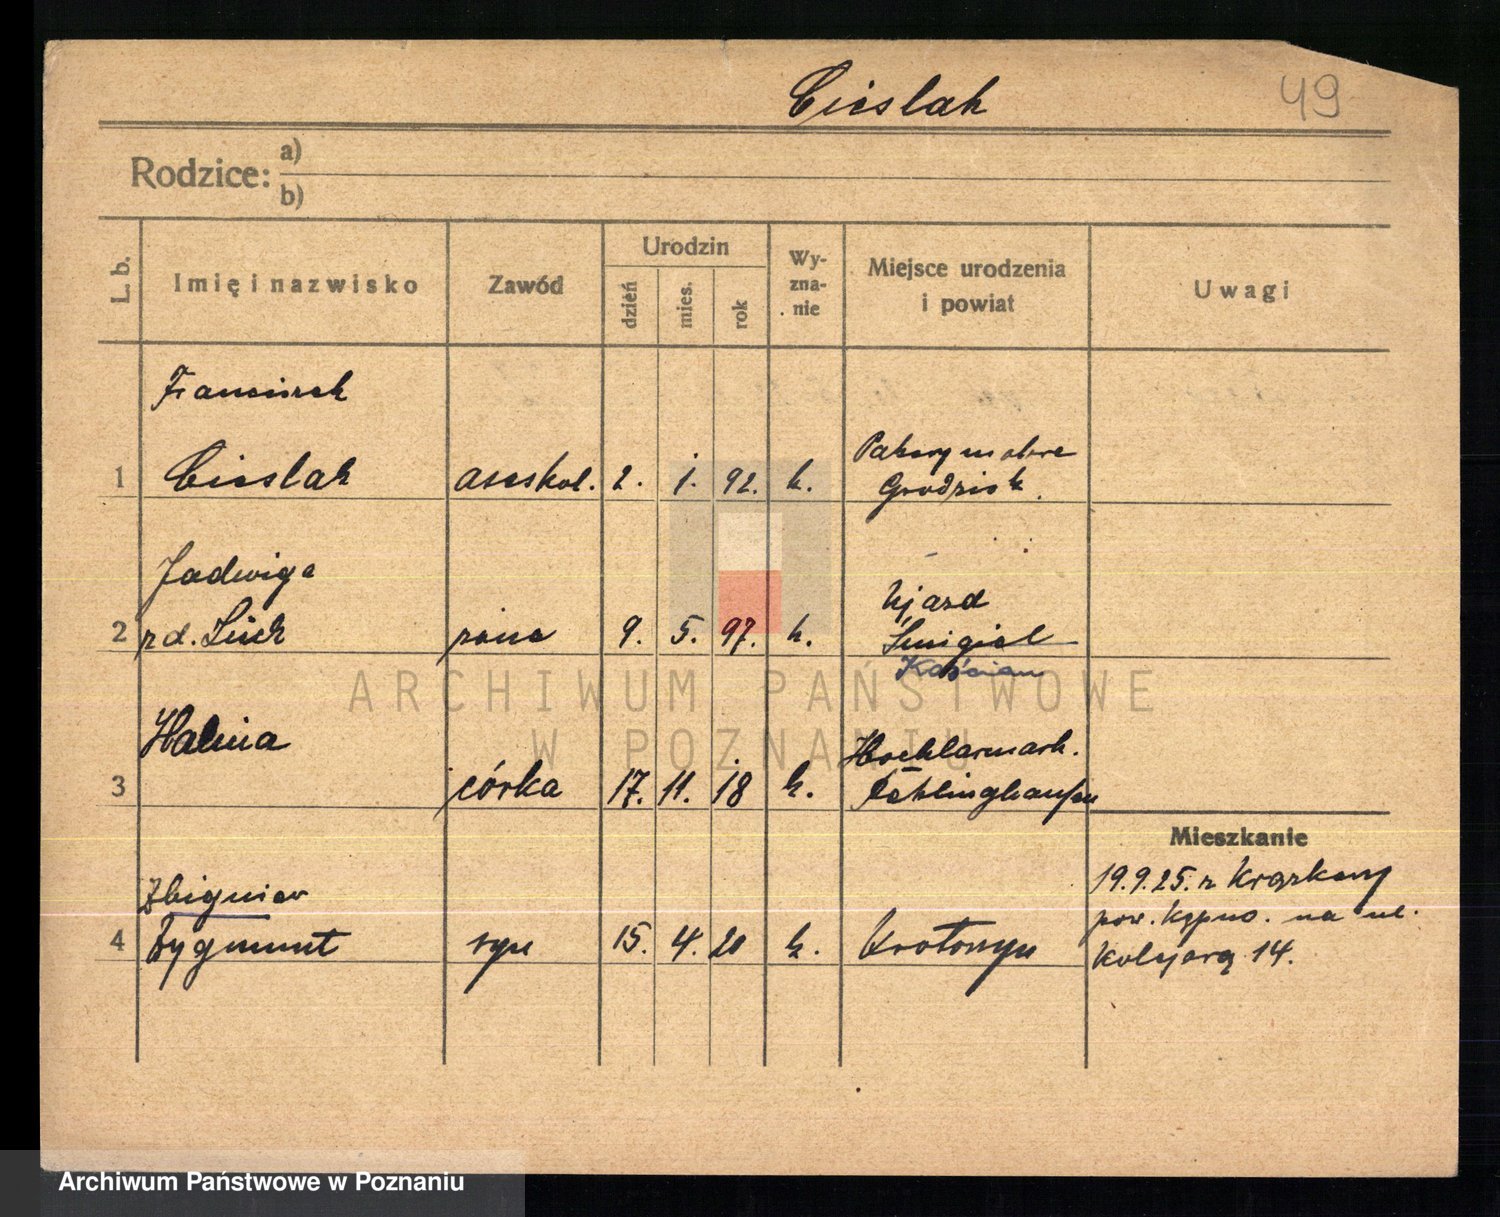 Cieslak 49
Rodzice: a)
b)
L. b. Imię i nazwisko Zawód Urodzin dzień mies. rok Wy-zna-nie Miejsce urodzenia i powiat Uwagi
Franciszek
1 Cieslak 2. 1. 92. k.
Grodzisk
Jadwiga
Ujazd
2 żona 9. 5. 97. k. Śmigiel
Kościan
ARCHIWUM PAŃSTWOWE
W POZNANIU
Halina
Hochlarmark.
3 córka 17. 11. 18 k.
Mieszkanie
19.9.25. z
Zbigniew
pow. Kępno. na ul.
4 Zygmunt syn 15. 4. 20 k. Krotoszyn
Kolejową 14.
Archiwum Państwowe w Poznaniu